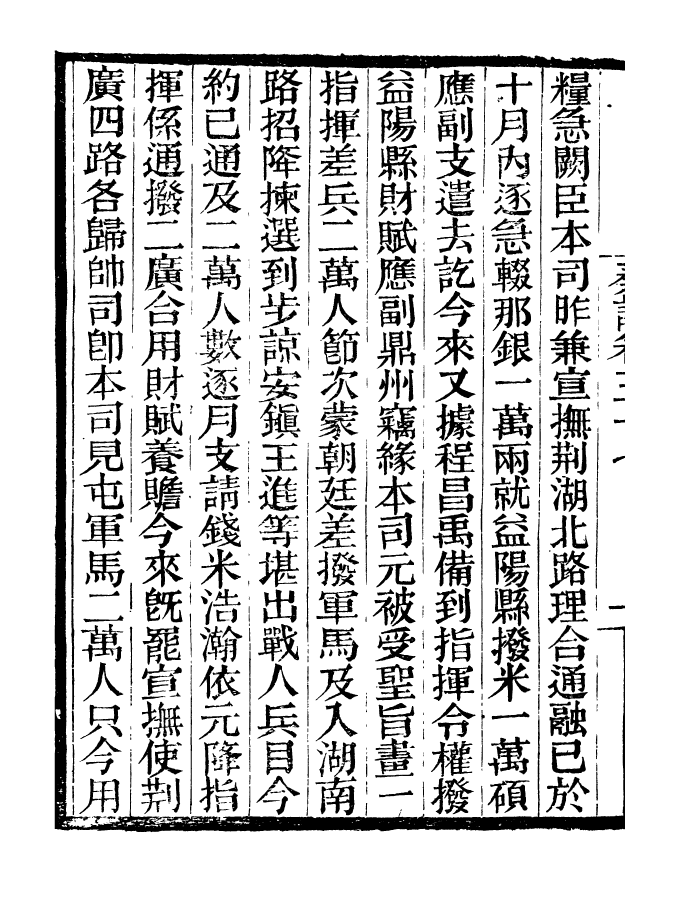 糧急闕臣本司昨兼宣撫荆湖北路理合通融已於
十月內逐急輟那銀一萬兩就益陽縣撥米一萬碩
應副支遣去訖今來又據程昌禹備到指揮令權撥
益陽縣財賦應副鼎州竊緣本司元被受聖旨畫一
指揮差兵二萬人節次蒙朝廷差撥軍馬及入湖南
路招降揀選到步諒安鎭王進等堪出戰人兵目今
約已通及二萬人數逐月支請錢米浩瀚依元降指
揮係通撥二廣合用財賦養贍今來旣罷宣撫使荆
廣四路各歸帥司卽本司見屯軍馬二萬人只今用